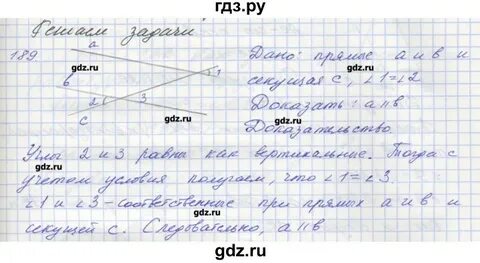 гдз.ру
Решаем задачи
189.
a
б
1
2
3
c
gdz.ru
gdz.ru
gdz.ru
gdz.ru
Дано: прямые a и в и
секущая c, ∠1=∠2
Доказать: a||в
Доказательство
Углы 2 и 3 равны как вертикальные. Тогда с
учетом условия получаем, что ∠1=∠3.
∠1 и ∠3 - соответственные при прямых a и в и
секущей c. Следовательно, a||в
gdz.ru
gdz.ru
gdz.ru
gdz.ru